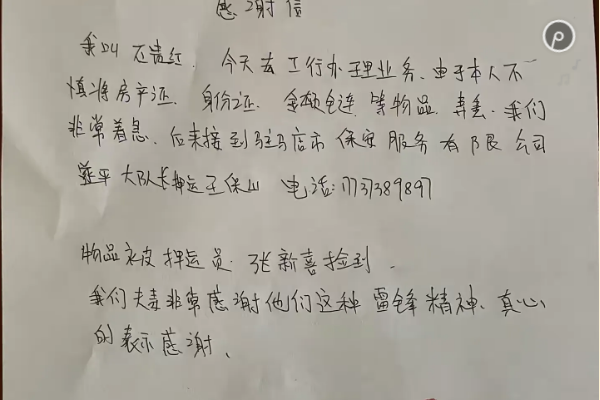 感谢信
我叫石贵红. 今天去工行办理业务、由于本人不
慎将房产证. 身份证. 金项链 等物品 弄丢. 我们
非常着急. 后来接到驻马店市 保安 服务有限公司
平 大队长押运王保山 电话:17737389897
物品被押运员. 张新喜捡到.
我们夫妻非常感谢他们这种 雷锋精神、真心
的表示感谢、